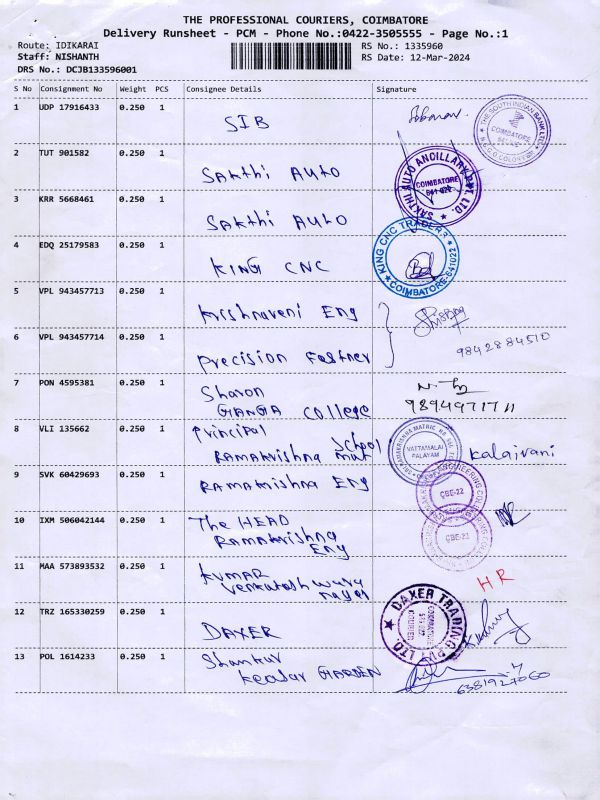 THE PROFESSIONAL COURIERS, COIMBATORE
Delivery Runsheet - PCM - Phone No.:0422-3505555 - Page No.:1
Route: IDIKARAI RS No.: 1335960
Staff: NISHANTH RS Date: 12-Mar-2024
DRS No.: DCJB133596001
S No Consignment No Weight PCS Consignee Details Signature
1 UDP 17916433 0.250 1 SIB
THE SOUTH INDIAN BANK LTD. COIMBATORE
2 TUT 901582 0.250 1 Sakthi Auto
SAKTHI AUTO ANCILLARY PVT. LTD. COIMBATORE 641 022
3 KRR 5668461 0.250 1 Sakthi Auto
4 EDQ 25179583 0.250 1 KING CNC
KING CNC TRADERS COIMBATORE-641022
5 VPL 943457713 0.250 1 Krishnaveni Eng
6 VPL 943457714 0.250 1 Precision Fastner
9842884510
7 PON 4595381 0.250 1 Sharon
GANGA College
9894971711
8 VLI 135662 0.250 1 Principal
Ramakrishna Mat School
VATTAMALAI PALAYAM
Kalaivani
9 SVK 60429693 0.250 1 Ramakrishna Eng
CBE-22
10 IXM 506042144 0.250 1 The HEAD
Ramakrishna
Eng
11 MAA 573893532 0.250 1 Kumar
HR
12 TRZ 165330259 0.250 1 DAXER
DAXER TRADING PVT LTD. COIMBATORE
13 POL 1614233 0.250 1 Shankar
GARDEN
6381927060